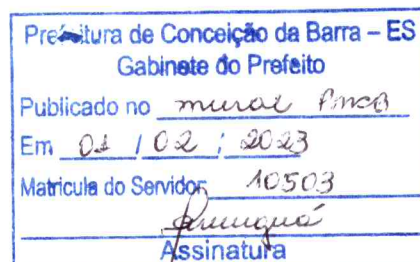 Prefeitura de Conceição da Barra – ES
Gabinete do Prefeito
Publicado no mural PMCB
Em 01 / 02 / 2023
Matricula do Servidor 10503
Assinatura